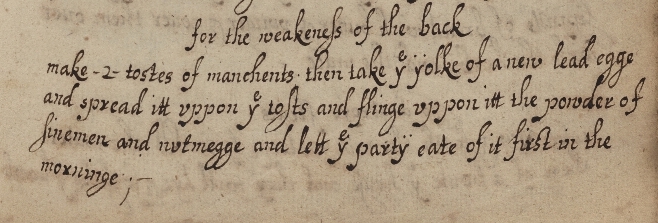 for the weakeness of the back
make -2- tostes of manchents. then take yͤ ÿolke of a new lead egge
and spread itt vppon yͤ tosts and flinge vppon itt the powder of
sinemen and nutmegge and lett yͤ partÿ eate of it first in the
morninge ;—